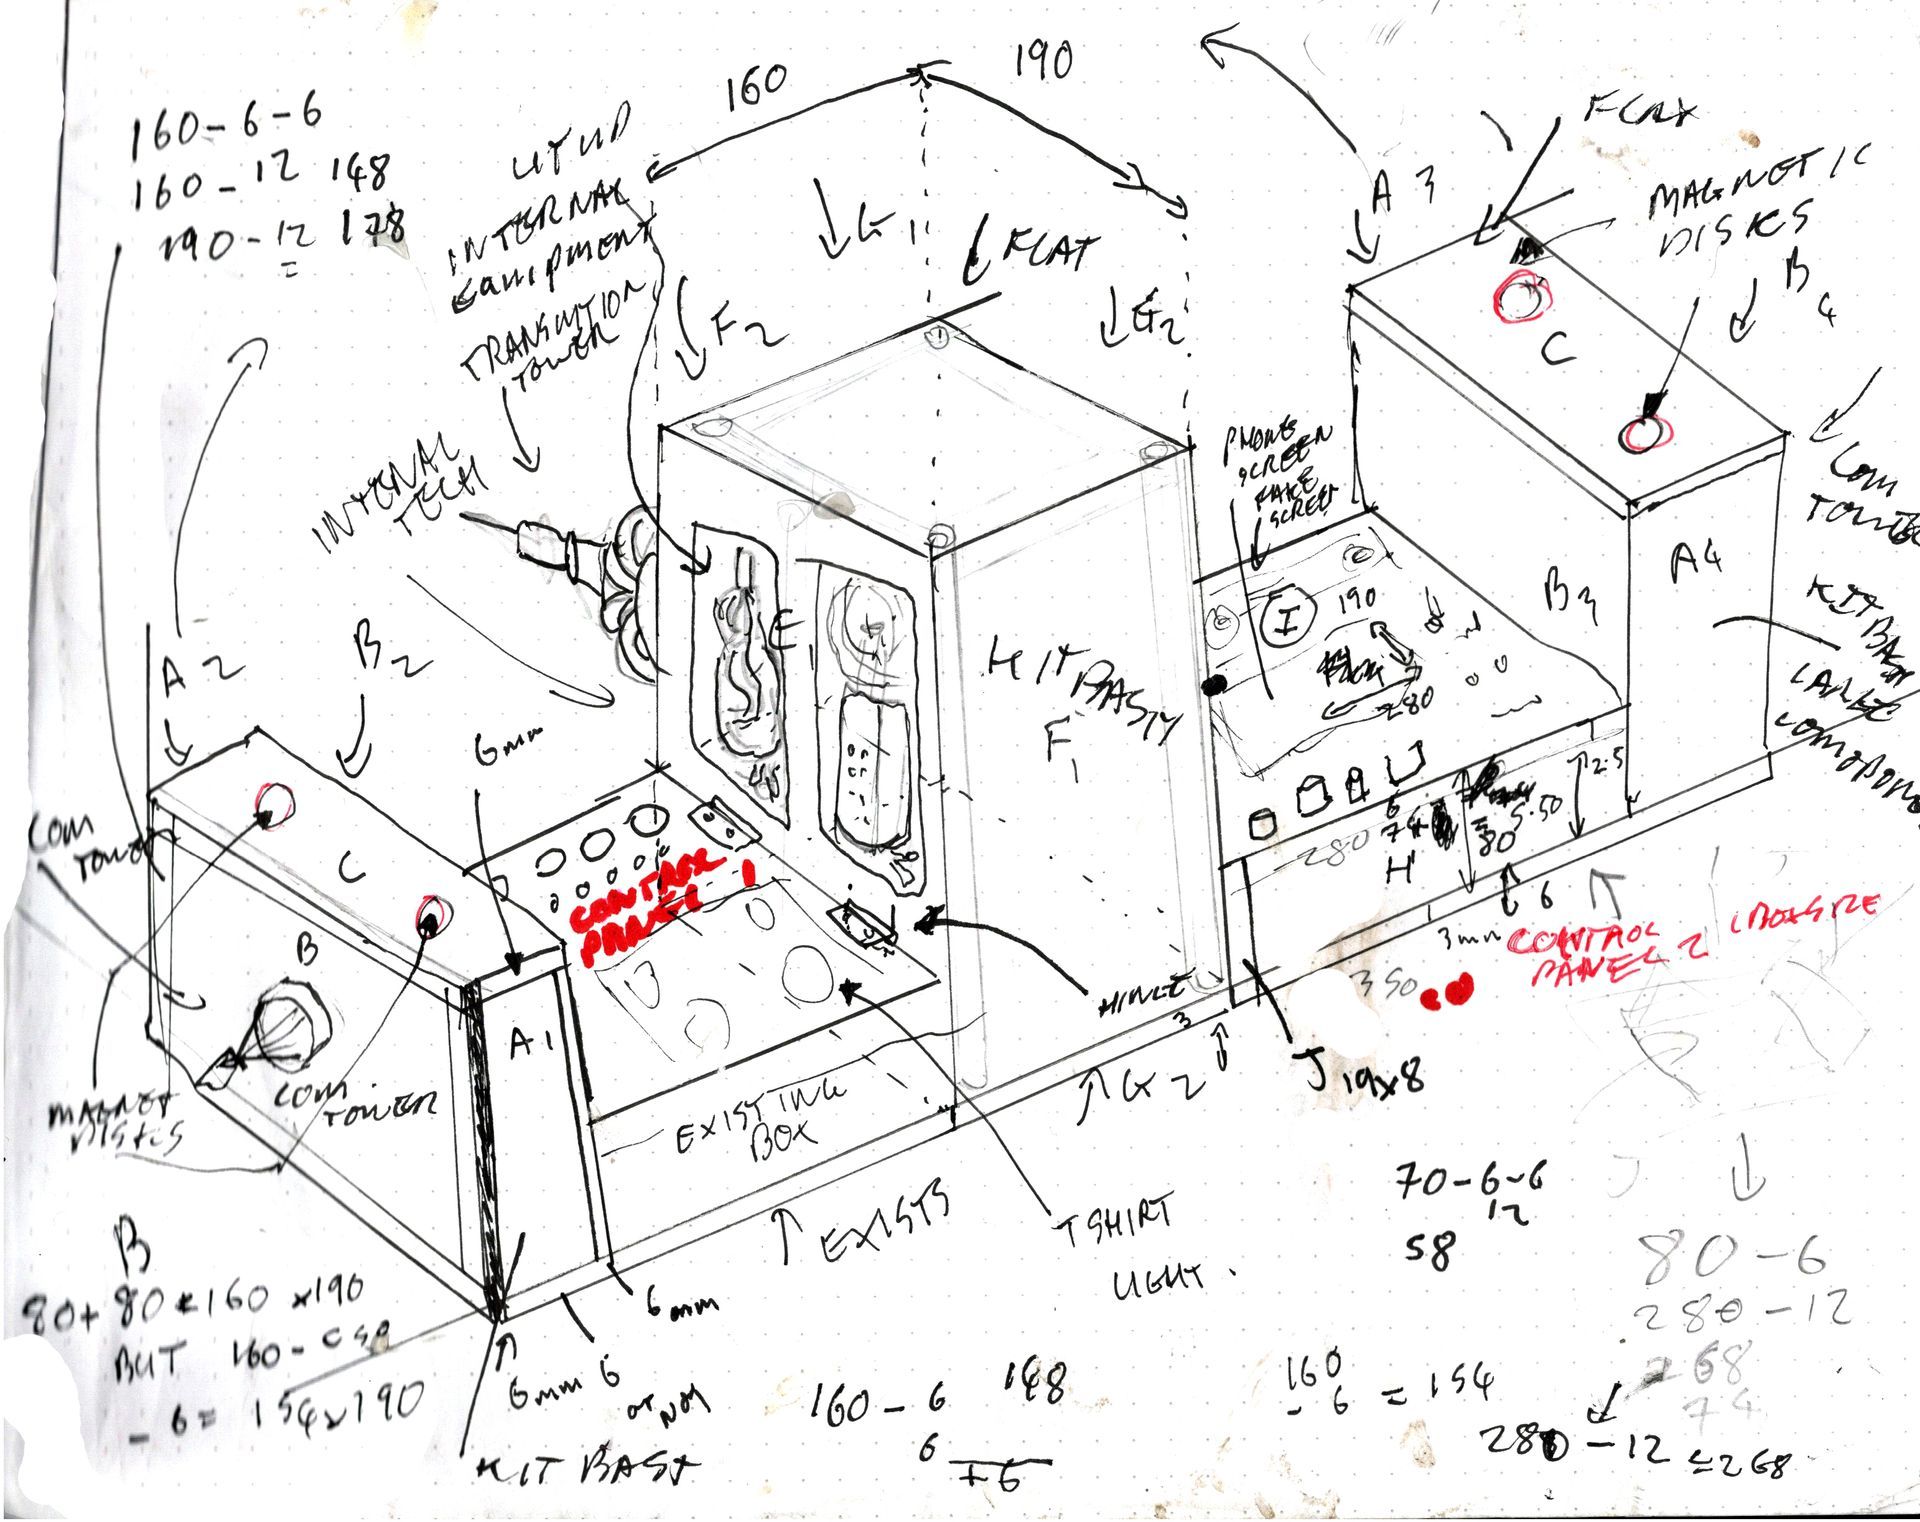 160
190
160-6-6
160-12 148
190-12 178
=
INTERNAL
EQUIPMENT
TOWER
G1
FLAT
F2
G2
A3
MAGNETIC
DISKS
B4
C
COM
INTENAL
TECH
PHONE
SCREEN
FAKE
SCREEN
A2
B2
6mm
E1
F1
I
190
280
B3
A4
KITBASH
LARGE
COM
TOWER
C
CONTROL
PANEL 1
B
A1
COM.
TOWER
MAGNET
DISKS
EXISTING
BOX
HINGE
3
G2
J 19x8
280
6
74
H
80
5.50
2.5
6
3mm
350
CONTROL
PANEL 2
EXISTS
TSHIRT
LIGHT.
6mm
6mm 6
KIT BASH
B
80+80 160 x190
BUT 160-
-6= 154x190
160-6 148
6
+6
70-6-6
12
58
160
-6 = 154
80-6
280-12
268
74
280-12
=268